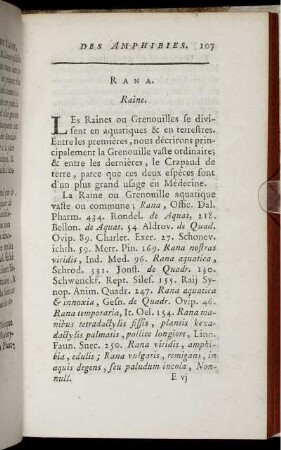 DES AMPHIBIES. 107
RANA.
Raine.
LEs Raines ou Grenouilles se divi-
sent en aquatiques & en terrestres.
Entre les premières, nous décrirons prin-
cipalement la Grenouille vaste ordinaire;
& entre les dernières, le Crapaud de
terre, parce que ces deux espèces sont
d'un plus grand usage en Médecine.
La Raine ou Grenouille aquatique
vaste ou commune; Rana, Offic. Dal.
Pharm. 434. Rondel. de Aquat, 218.
Bellon. de Aquat. 54 Aldrov. de Quad.
Ovip. 89. Charlet. Exer. 27. Schonev.
ichth. 59. Merr. Pin. 169. Rana nostras
viridis, Ind. Med. 96. Rana aquatica,
Schrod. 331. Jonst. de Quadr. 130.
Schwenckf. Rept. Siles. 155. Raij Sy-
nop. Anim. Quadr. 247. Rana aquatica
& innoxia, Gesn. de Quadr. Ovip. 46.
Rana temporaria, It. Oel. 154. Rana ma-
nibus tetradactylis fissis, plantis hexa-
dactylis palmatis, pollice longiore, Linn.
Faun. Suec. 250. Rana viridis, amphi-
bia, edulis; Rana vulgaris, remigans, in
aquis degens, seu paludum incola, Non-
null.
E vj